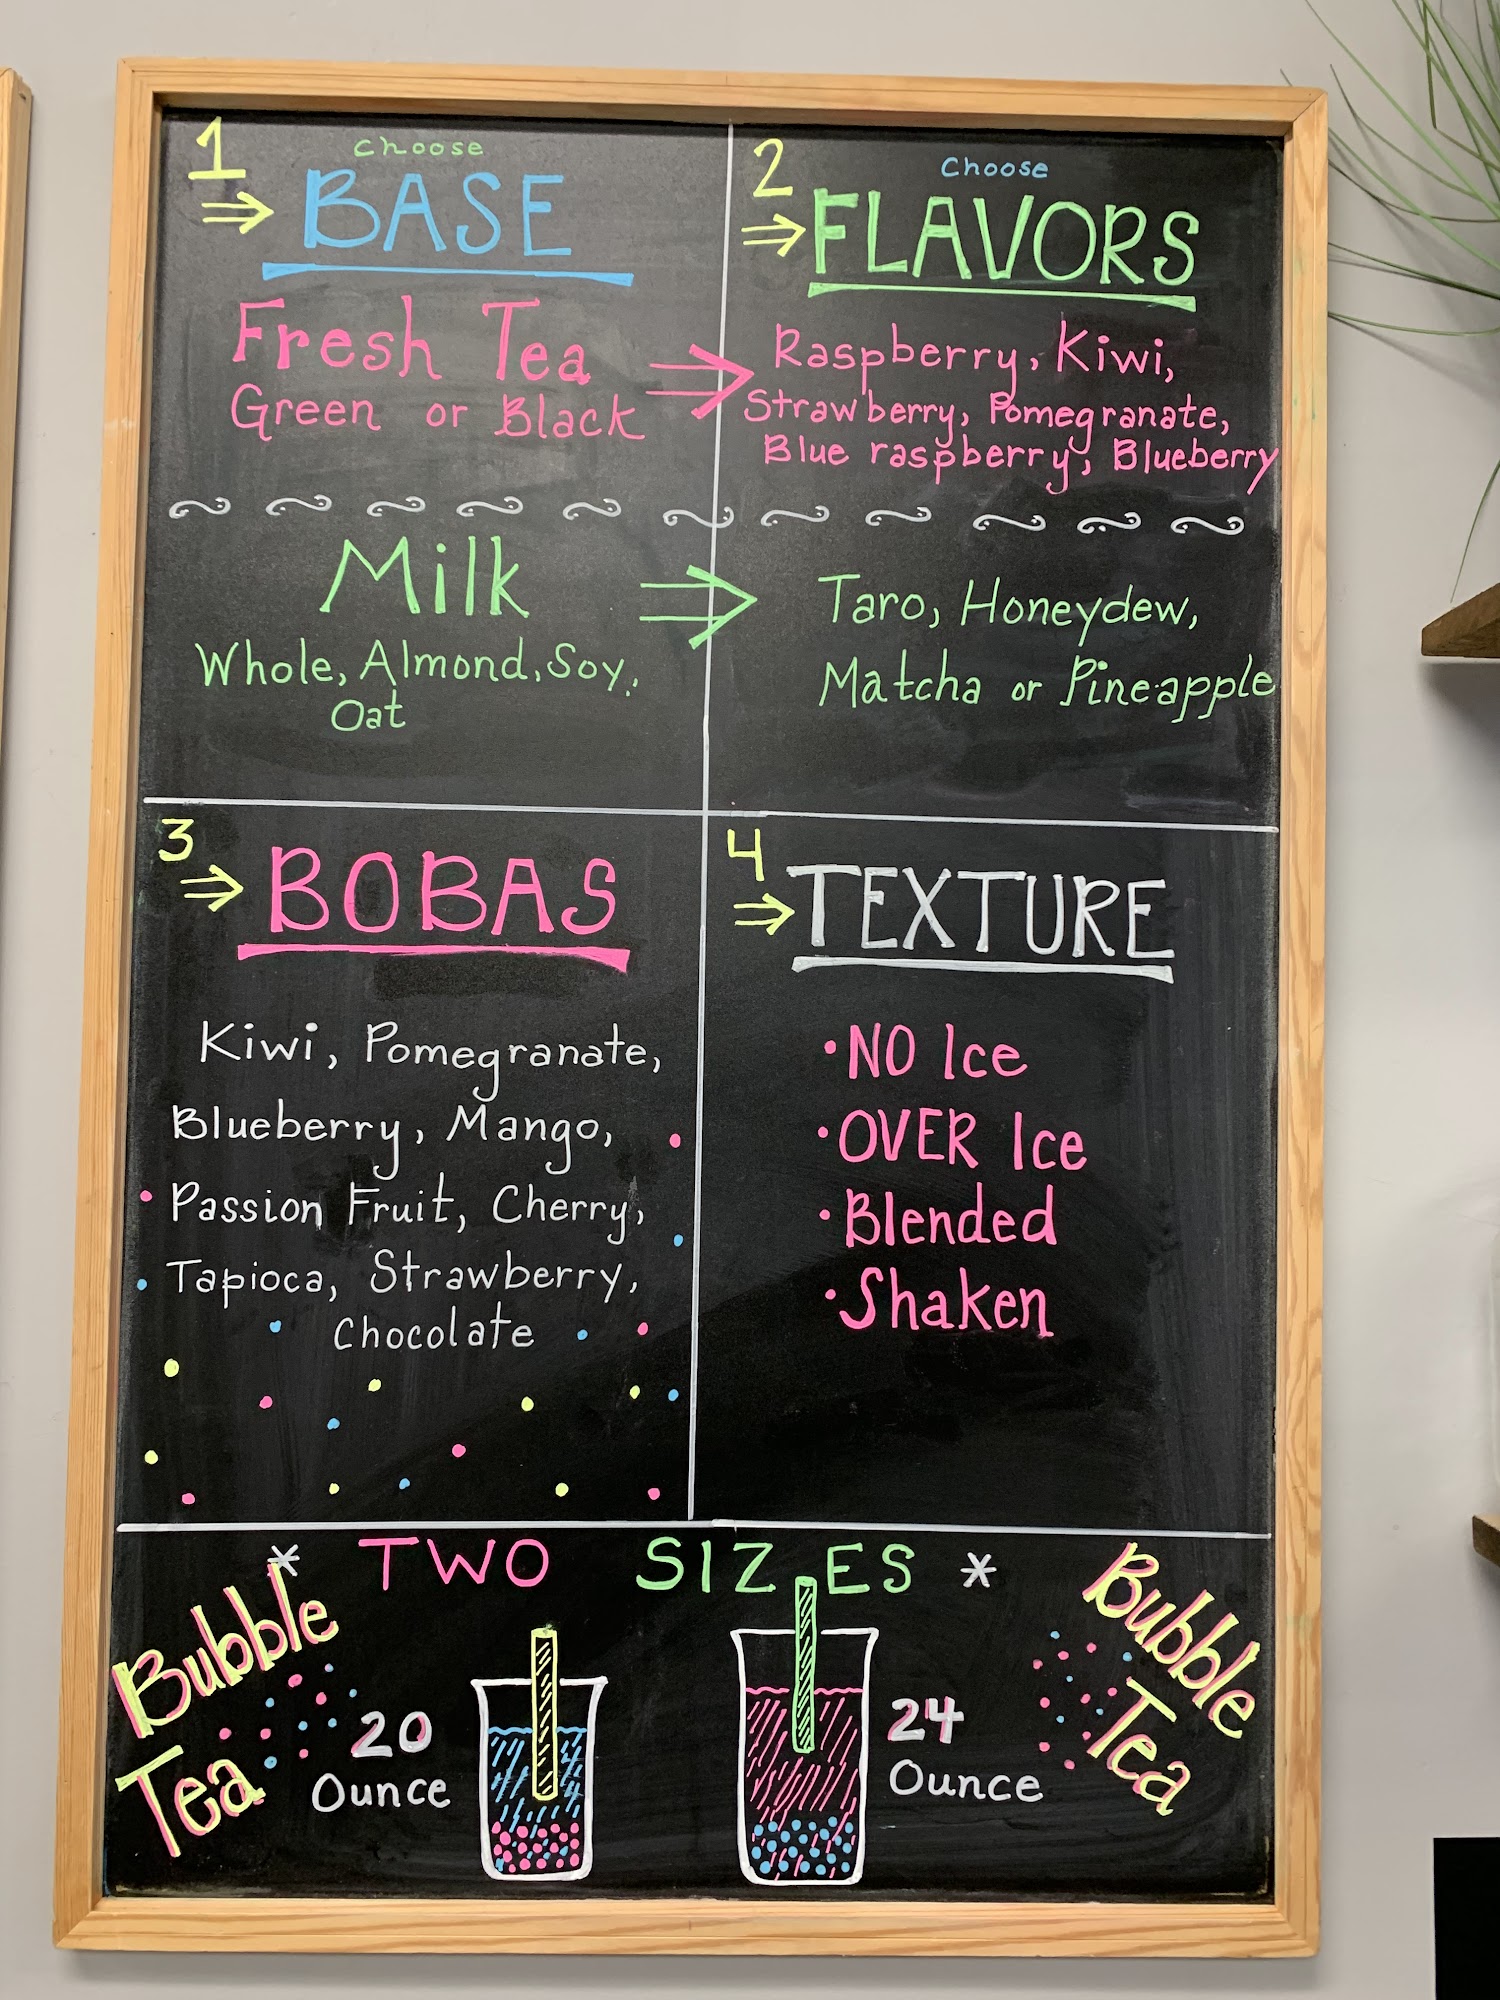 1
Choose
BASE
Fresh Tea
Green or Black
Milk
Whole, Almond, Soy,
Oat
2
Choose
FLAVORS
Raspberry, Kiwi,
Strawberry, Pomegranate,
Blue raspberry, Blueberry
Taro, Honeydew,
Matcha or Pineapple
3
BOBAS
Kiwi, Pomegranate,
Blueberry, Mango,
Passion Fruit, Cherry,
Tapioca, Strawberry,
Chocolate
4
TEXTURE
•NO Ice
•OVER Ice
•Blended
•Shaken
* TWO SIZES *
Bubble
Tea
20
Ounce
24
Ounce
Bubble
Tea